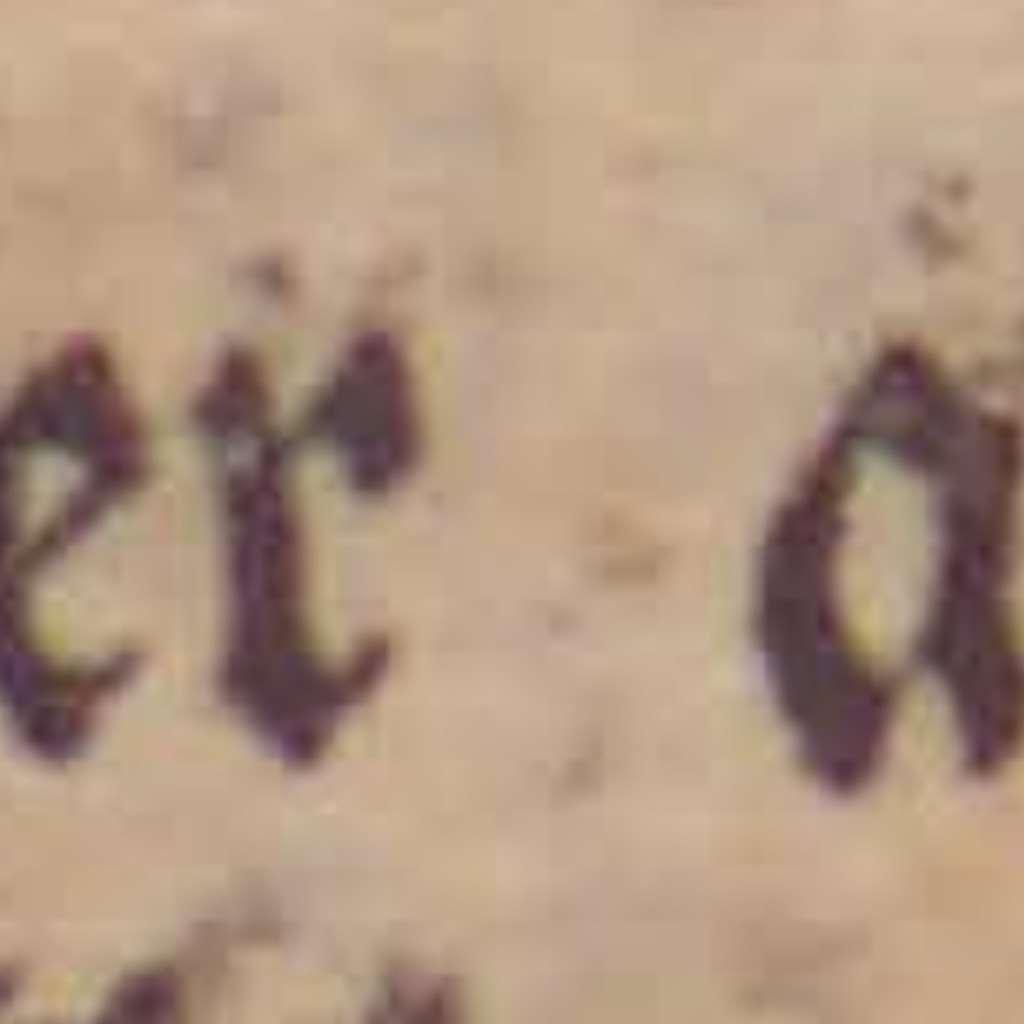 er a